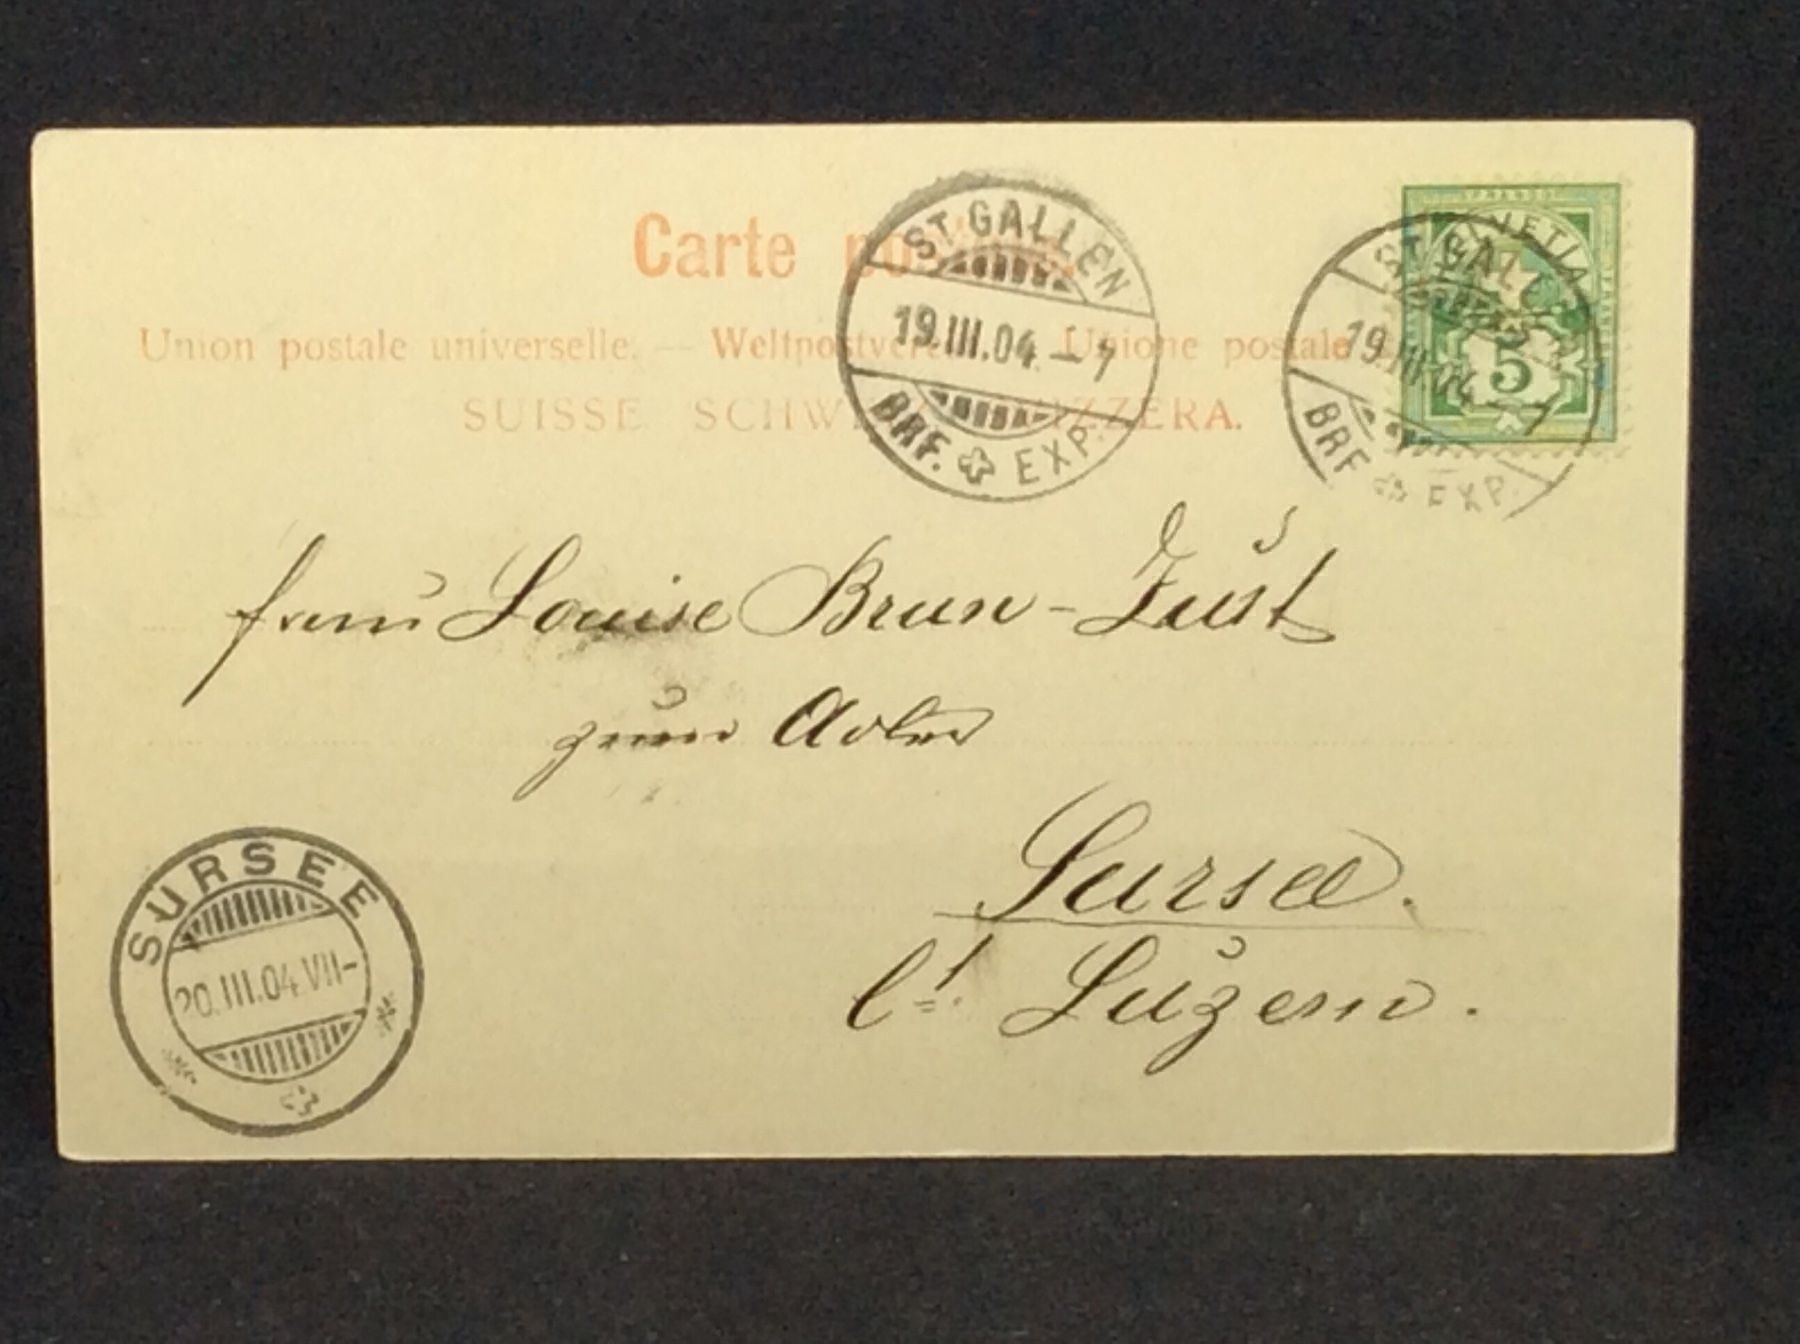 Carte postale.
Union postale universelle. — Weltpostverein — Unione postale
SUISSE SCHWEIZ SVIZZERA.
ST. GALLEN
19.III.04.–7
BRF. EXP.
HELVETIA
5
ST. GALLEN
19.III.04.–7
BRF. EXP.
Frau Louise Brun-Züst
zum Adler
Sursee.
Ct. Luzern.
SURSEE
20.III.04.VII–